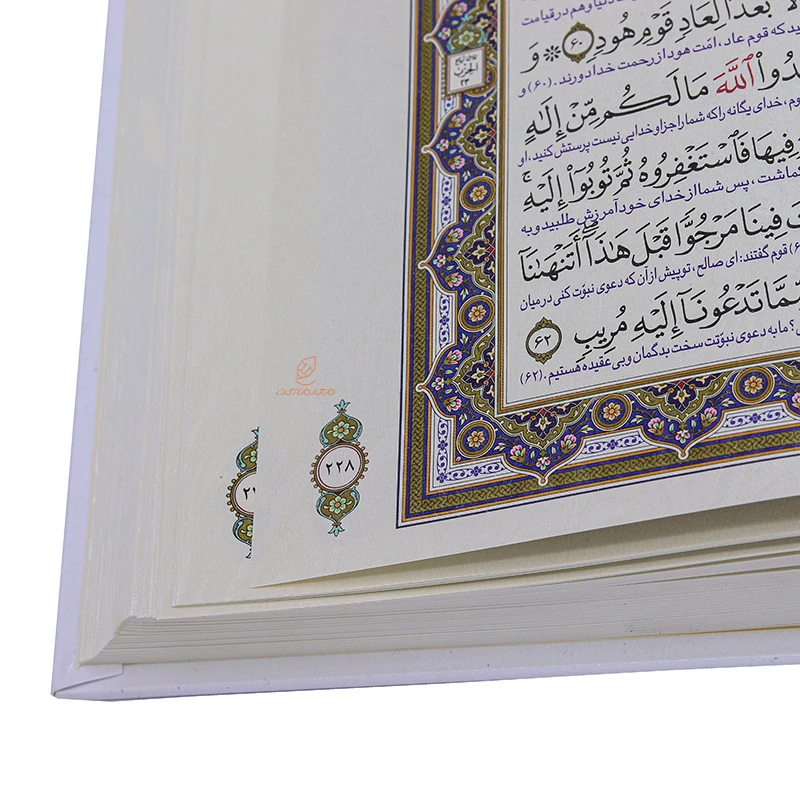 دنیا و هم در قیامت
لَا بُعْدًا لِعَادٍ قَوْمِ هُودٍ ۶۰ ❊ وَ
ید که قوم عاد، امّت هود از رحمت خدا دورند. (۶۰) و
ٱللَّهَ مَا لَكُم مِّنْ إِلَـٰهٍ
وم، خدای یگانه را که شما را جز او خدایی نیست پرستش کنید، او
فِيهَا فَٱسْتَغْفِرُوهُ ثُمَّ تُوبُوٓا۟ إِلَيْهِ ۚ
گماشت، پس شما از خدای خود آمرزش طلبید و به
فِينَا مَرْجُوًّا قَبْلَ هَـٰذَآ ۖ أَتَنْهَىٰنَآ
قوم گفتند: ای صالح، تو پیش از آن که دعوی نبوّت کنی در میان
تَدْعُونَآ إِلَيْهِ مُرِيبٍ ۶۲
؟ ما به دعوی نبوّتت سخت بدگمان و بی عقیده هستیم. (۶۲)
الحزب
۲۳
۲۲۸